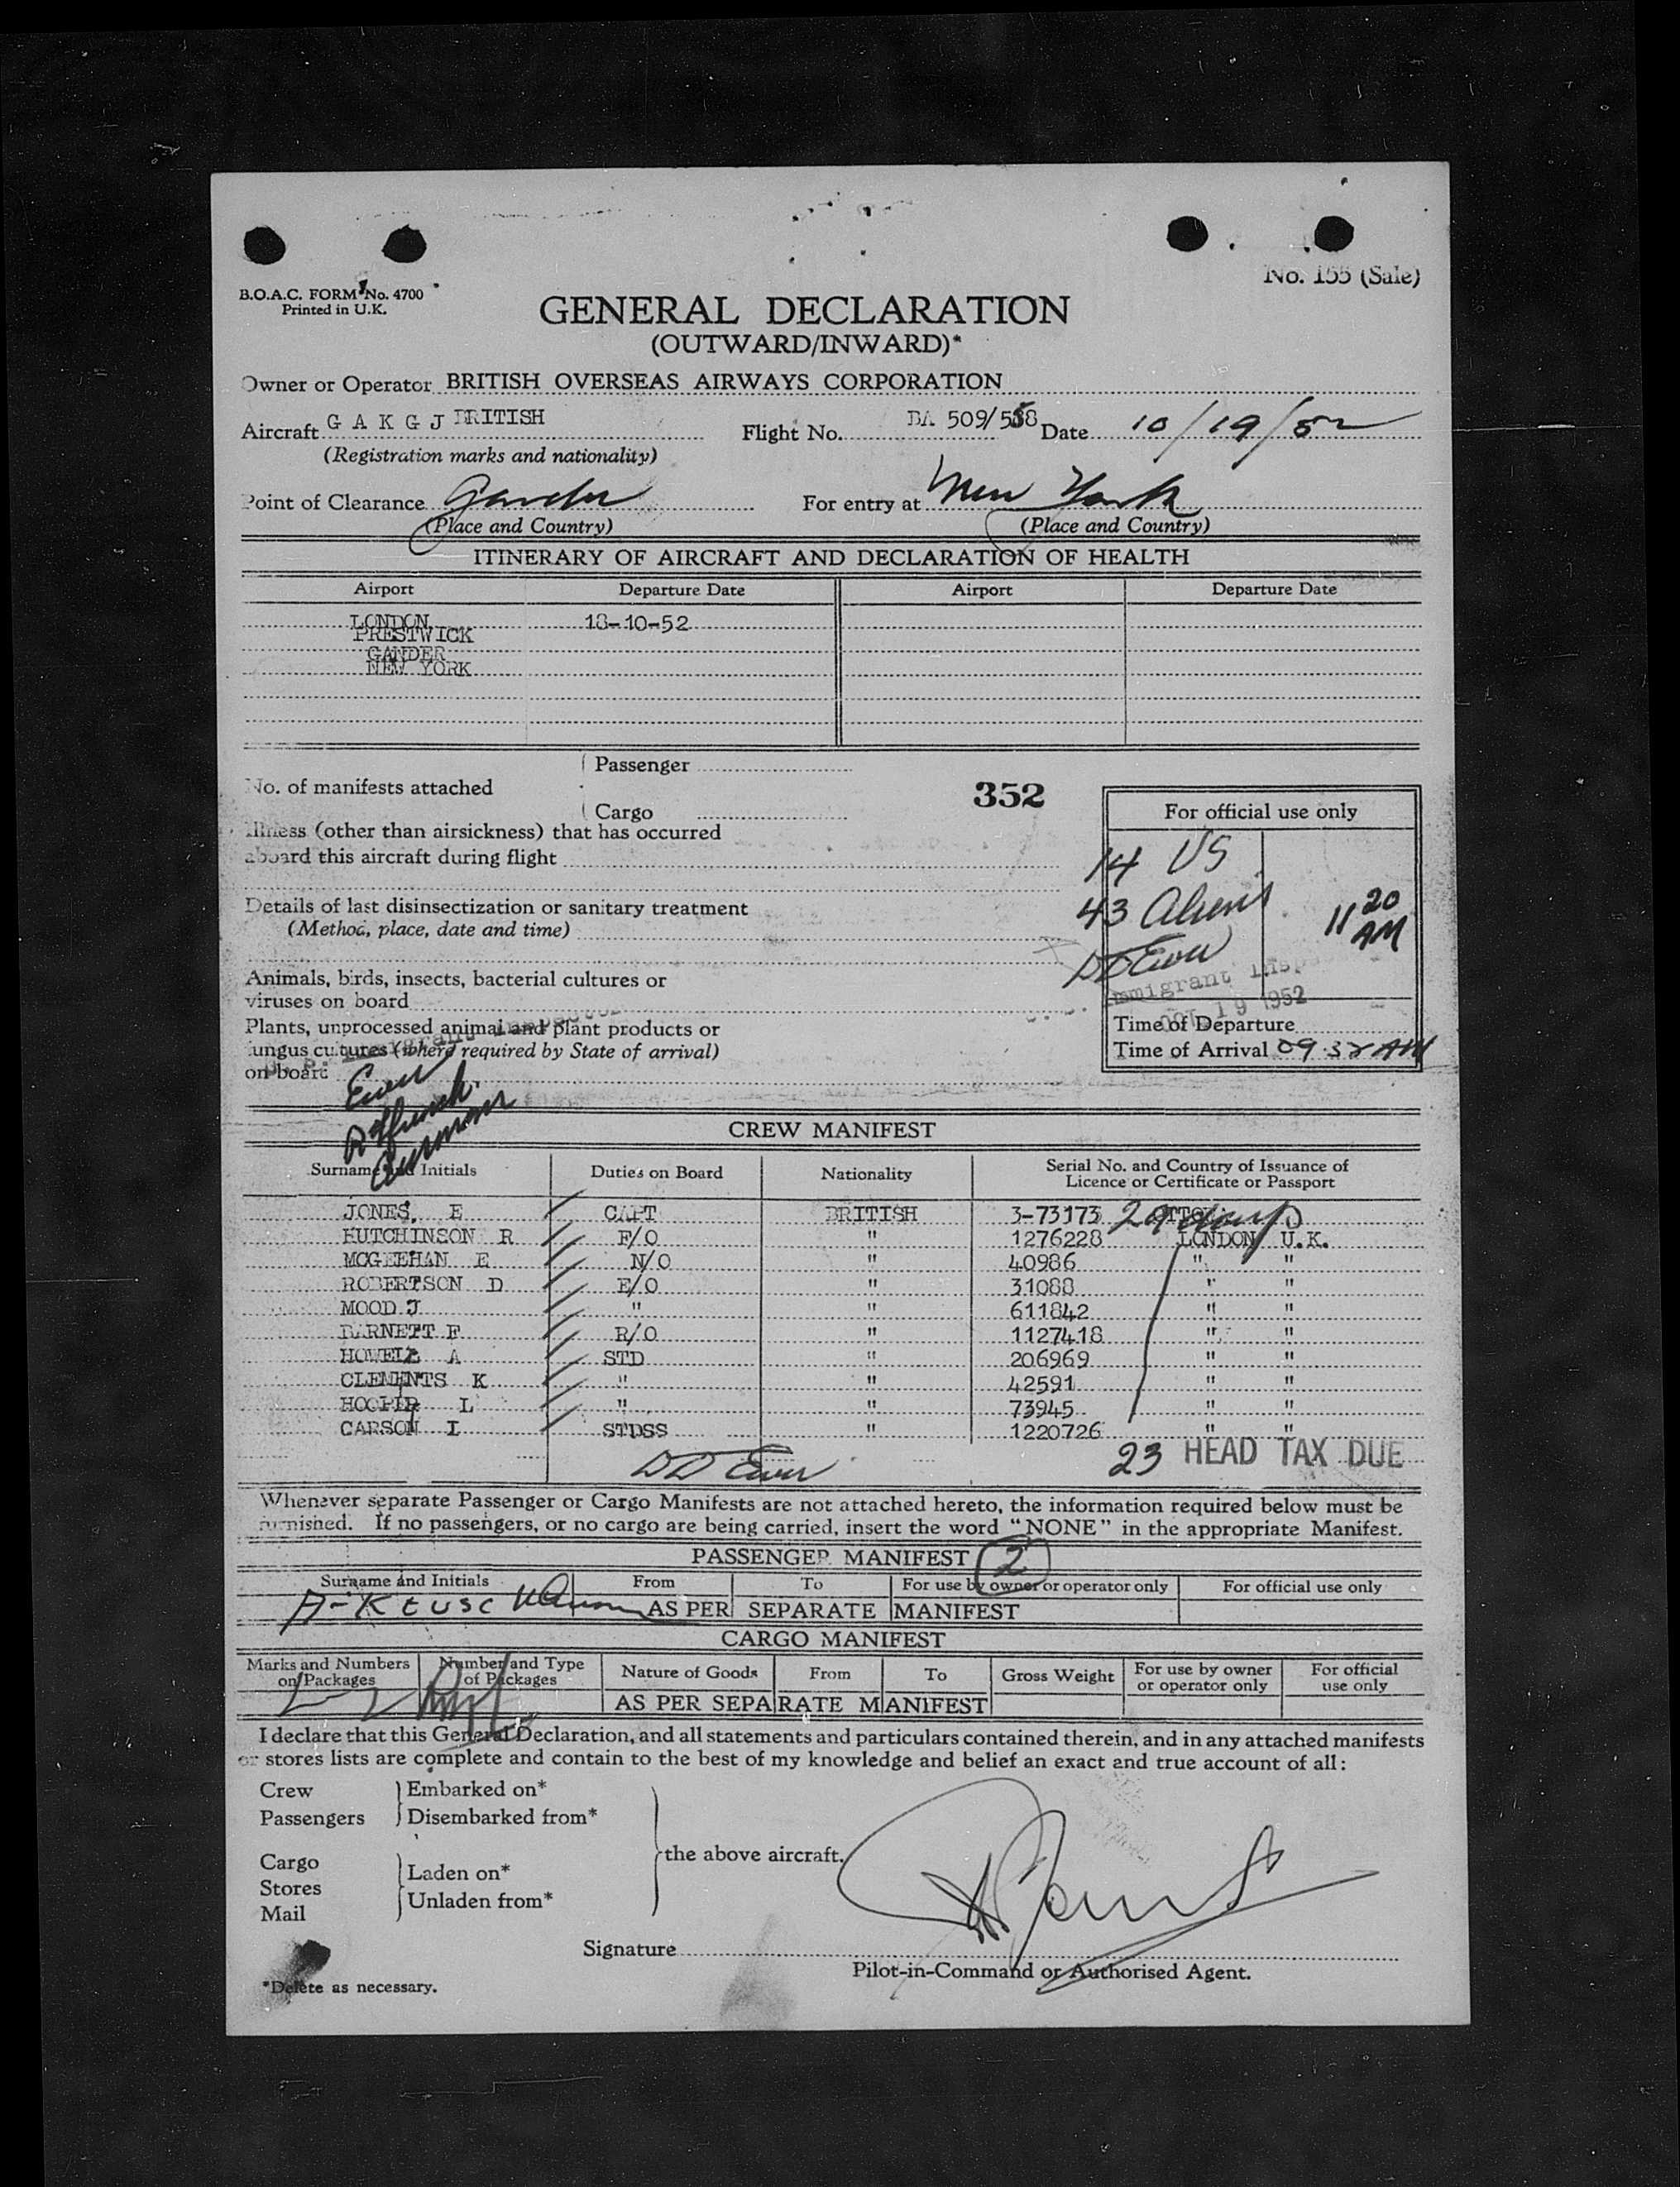 No. 155 (Sale)
B.O.A.C. FORM No. 4700
Printed in U.K.
GENERAL DECLARATION
(OUTWARD/INWARD)*
Owner or Operator BRITISH OVERSEAS AIRWAYS CORPORATION
Aircraft G A K G J BRITISH Flight No. BA 509/558 Date 10/19/52
(Registration marks and nationality)
Point of Clearance Gander For entry at New York
(Place and Country) (Place and Country)
ITINERARY OF AIRCRAFT AND DECLARATION OF HEALTH
Airport Departure Date Airport Departure Date
LONDON 18-10-52
PRESTWICK
GANDER
NEW YORK
Passenger
No. of manifests attached 352
Cargo
For official use only
Illness (other than airsickness) that has occurred
aboard this aircraft during flight
14 US
Details of last disinsectization or sanitary treatment
43 Aliens 11 20 AM
(Method, place, date and time)
DD Ewer
Animals, birds, insects, bacterial cultures or
Immigrant Insp
viruses on board
OCT 19 1952
Plants, unprocessed animal and plant products or
Time of Departure
fungus cultures (where required by State of arrival)
Time of Arrival 09.32 AM
on board
Immigrant Inspector
Ewer
CREW MANIFEST
Surname and Initials Duties on Board Nationality Serial No. and Country of Issuance of
Licence or Certificate or Passport
JONES, E CAPT BRITISH 3-73173 29 days
HUTCHINSON R F/O " 1276228 LONDON U.K.
MCGEEHAN E N/O " 40986 " "
ROBERTSON D E/O " 31088 " "
MOOD J " " 611842 " "
BARNETT F R/O " 1127418 " "
HOWELL A STD " 206969 " "
CLEMENTS K " " 42591 " "
HOOPER L " " 73945 " "
CARSON I STDSS " 1220726 " "
DD Ewer 23 HEAD TAX DUE
Whenever separate Passenger or Cargo Manifests are not attached hereto, the information required below must be
furnished. If no passengers, or no cargo are being carried, insert the word "NONE" in the appropriate Manifest.
PASSENGER MANIFEST 2
Surname and Initials From To For use by owner or operator only For official use only
A-K EUSC AS PER SEPARATE MANIFEST
CARGO MANIFEST
Marks and Numbers on Packages Number and Type of Packages Nature of Goods From To Gross Weight For use by owner or operator only For official use only
AS PER SEPARATE MANIFEST
I declare that this General Declaration, and all statements and particulars contained therein, and in any attached manifests
or stores lists are complete and contain to the best of my knowledge and belief an exact and true account of all:
Crew Embarked on*
Passengers Disembarked from*
the above aircraft.
Cargo Laden on*
Stores
Unladen from*
Mail
Signature
Pilot-in-Command or Authorised Agent.
*Delete as necessary.